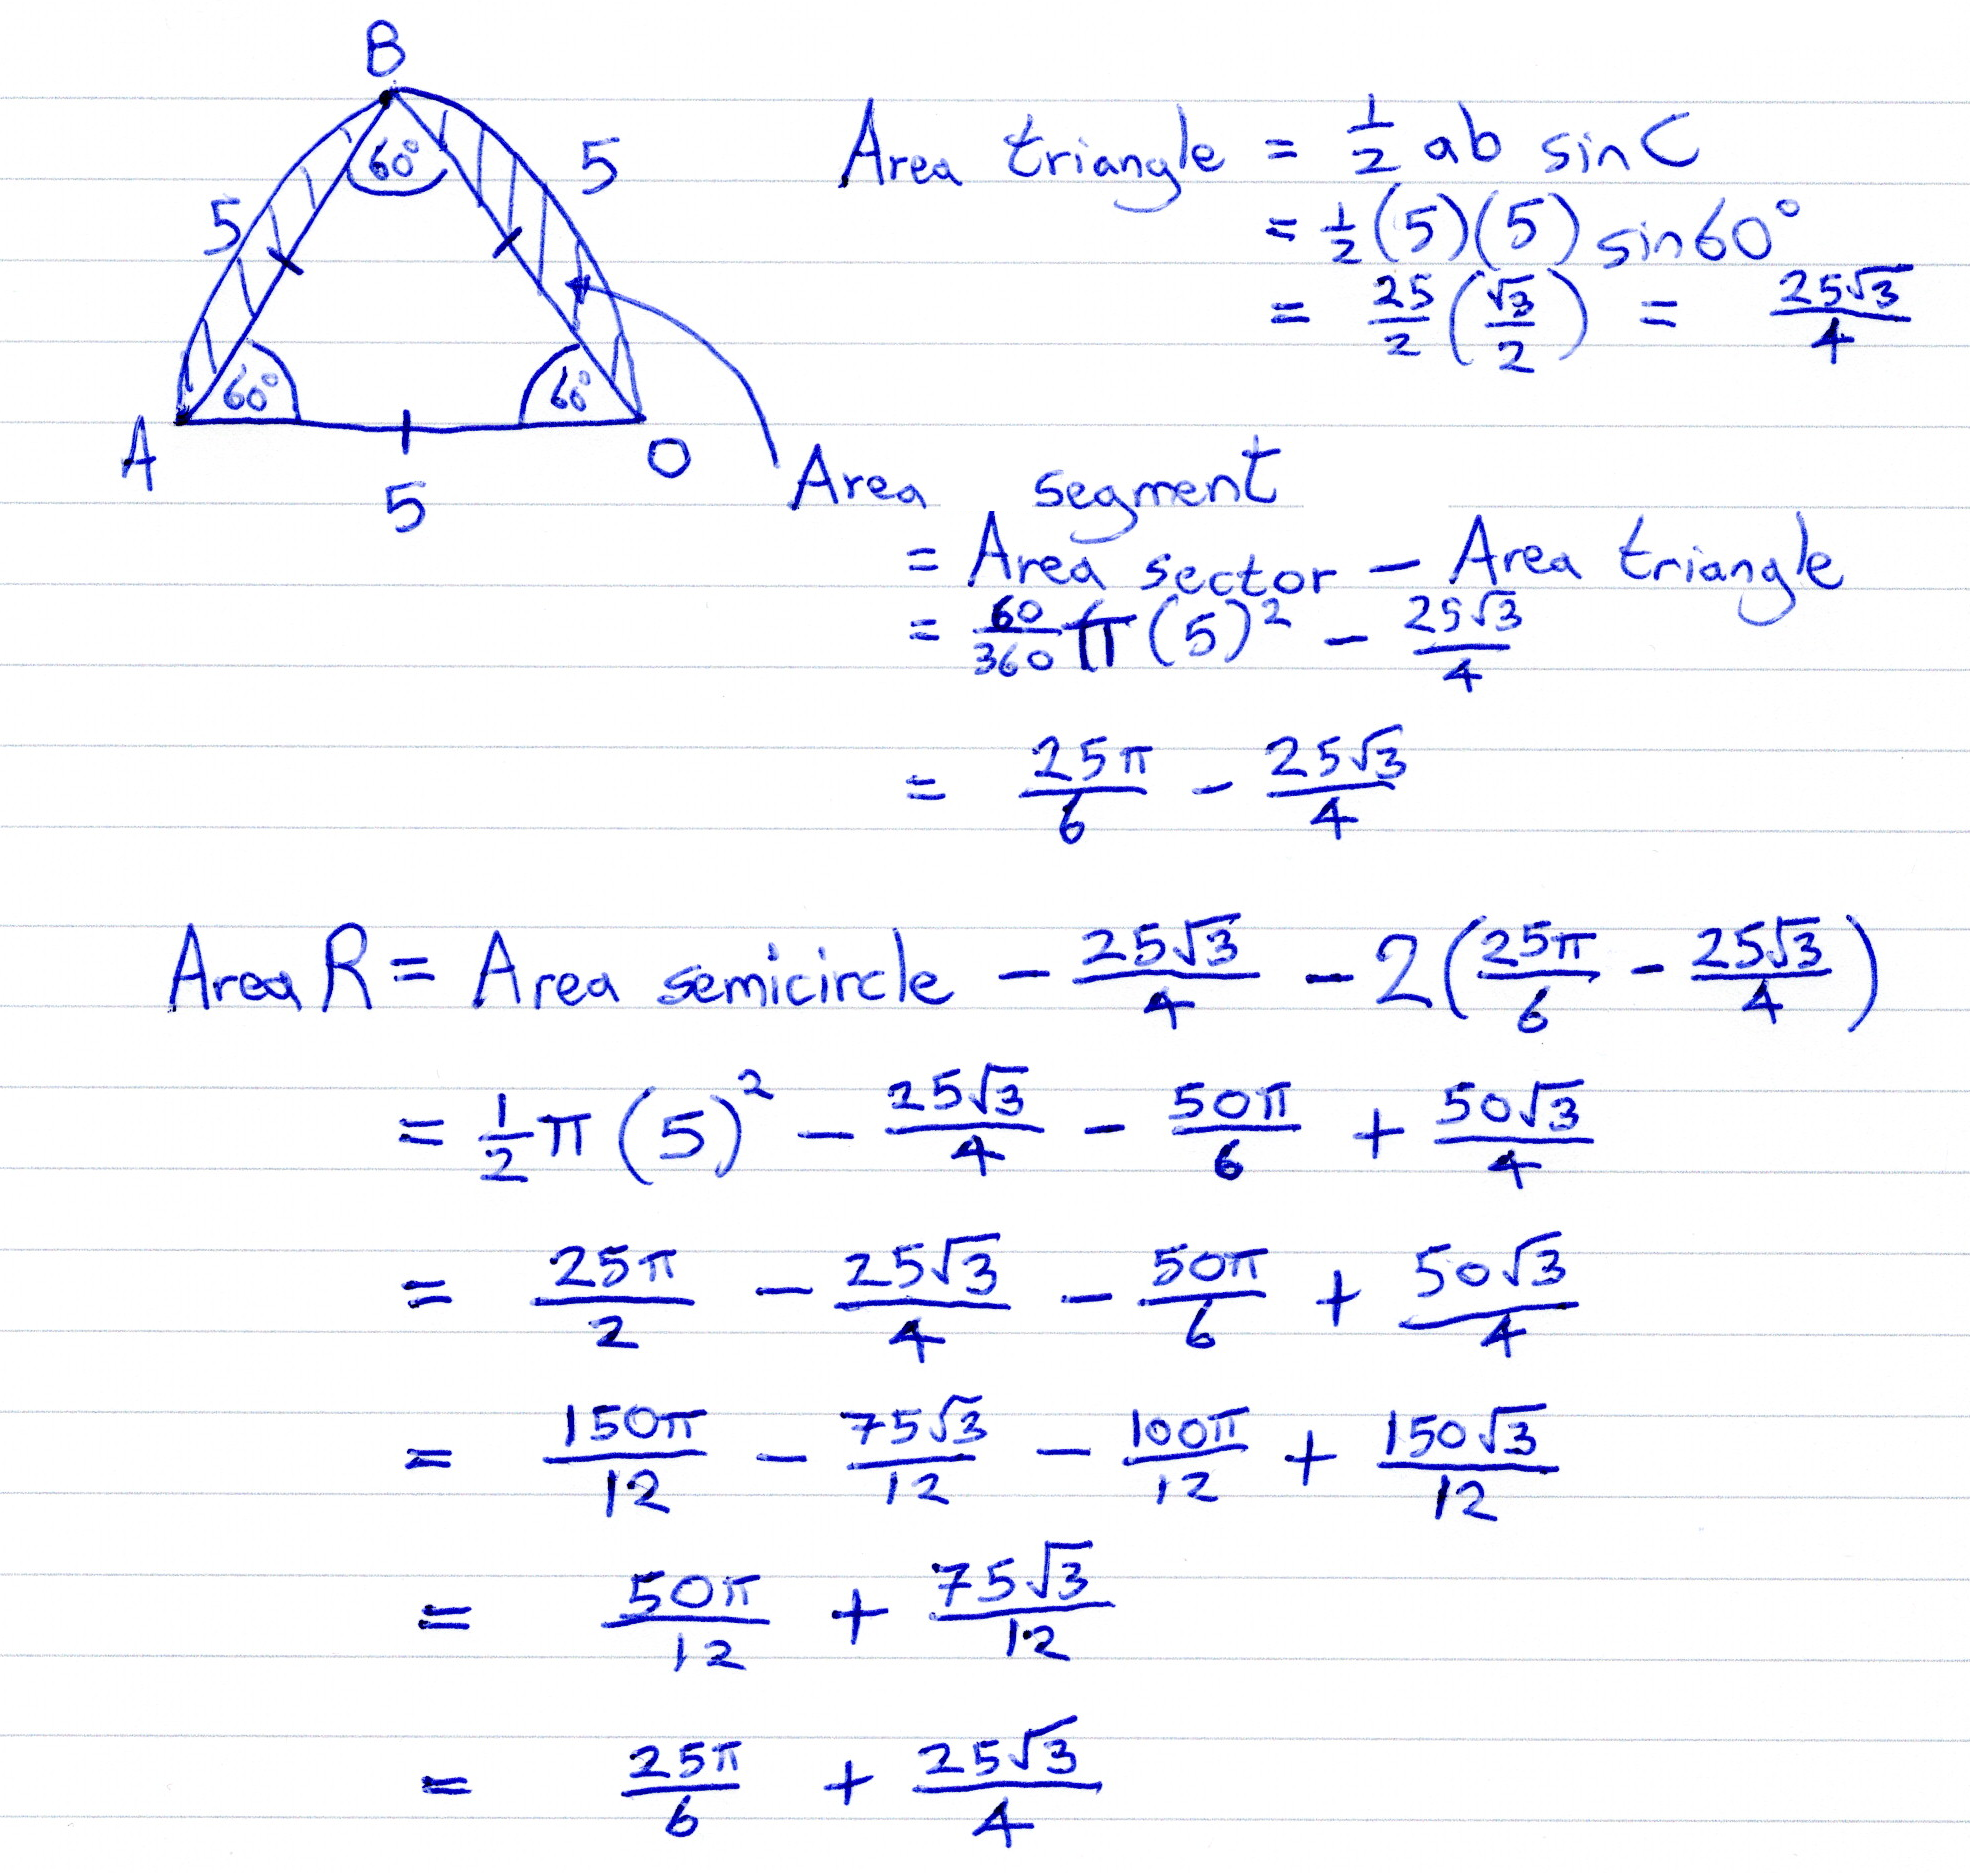 B
60°
5
5
60°
60°
A
O
5
Area triangle = 1/2 ab sin C
= 1/2 (5)(5) sin 60°
= 25/2 (√3/2) = 25√3/4
Area segment
= Area sector - Area triangle
= 60/360 π (5)² - 25√3/4
= 25π/6 - 25√3/4
Area R = Area semicircle - 25√3/4 - 2(25π/6 - 25√3/4)
= 1/2 π (5)² - 25√3/4 - 50π/6 + 50√3/4
= 25π/2 - 25√3/4 - 50π/6 + 50√3/4
= 150π/12 - 75√3/12 - 100π/12 + 150√3/12
= 50π/12 + 75√3/12
= 25π/6 + 25√3/4